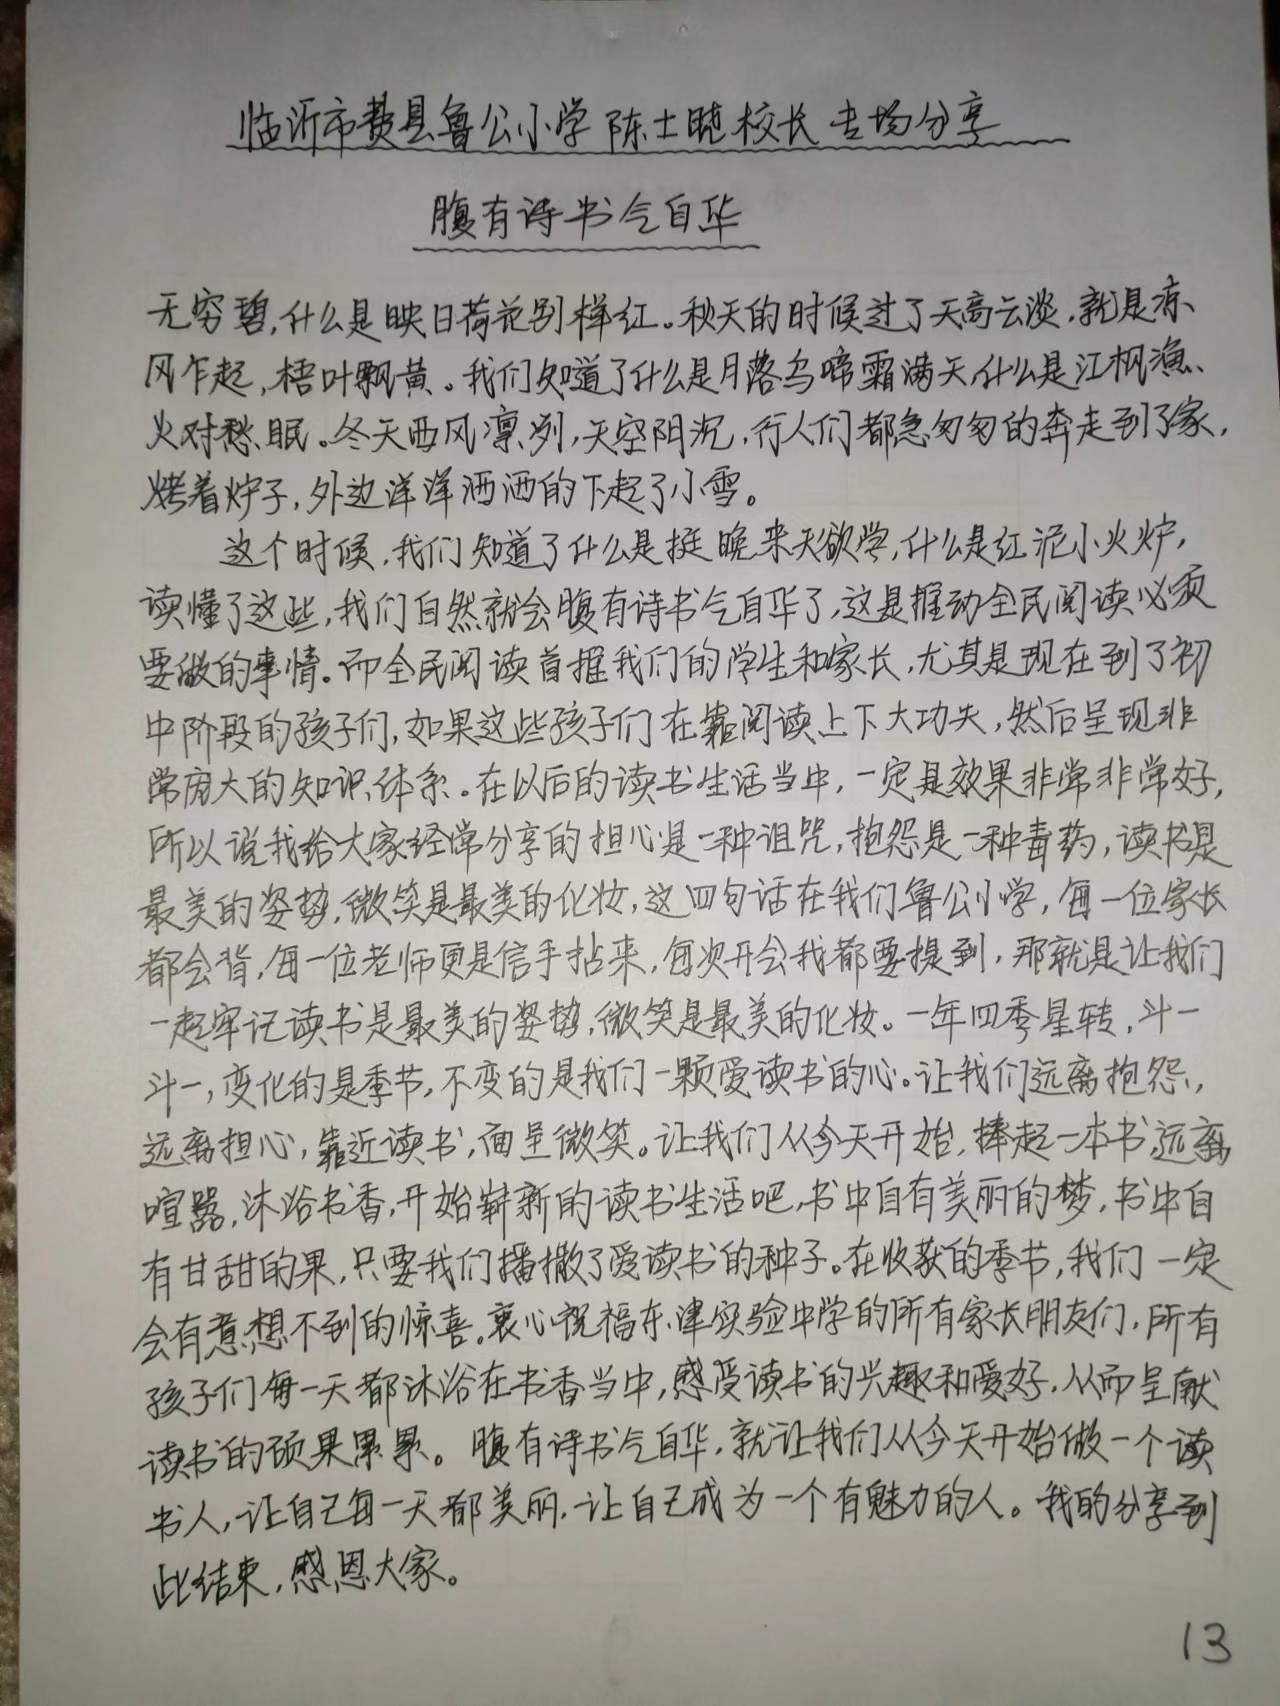 临沂市费县鲁公小学陈士晓校长专场分享
腹有诗书气自华
无穷碧,什么是映日荷花别样红。秋天的时候过了天高云淡,就是凉
风乍起,梧叶飘黄。我们知道了什么是月落乌啼霜满天,什么是江枫渔
火对愁眠。冬天西风凛冽,天空阴沉,行人们都急匆匆的奔走到了家,
烤着炉子,外边洋洋洒洒的下起了小雪。
这个时候,我们知道了什么是挺晚来天欲学,什么是红泥小火炉,
读懂了这些,我们自然就会腹有诗书气自华了,这是推动全民阅读必须
要做的事情。而全民阅读首推我们的学生和家长,尤其是现在到了初
中阶段的孩子们,如果这些孩子们在靠阅读上下大功夫,然后呈现非
常庞大的知识体系。在以后的读书生活当中,一定是效果非常非常好,
所以说我给大家经常分享的担心是一种诅咒,抱怨是一种毒药,读书是
最美的姿势,微笑是最美的化妆,这四句话在我们鲁公小学,每一位家长
都会背,每一位老师更是信手拈来,每次开会我都要提到,那就是让我们
一起牢记读书是最美的姿势,微笑是最美的化妆。一年四季星转,斗一
斗一,变化的是季节,不变的是我们一颗爱读书的心。让我们远离抱怨,
远离担心,靠近读书,面呈微笑。让我们从今天开始,捧起一本书,远离
喧嚣,沐浴书香,开始崭新的读书生活吧,书中自有美丽的梦,书中自
有甘甜的果,只要我们播撒了爱读书的种子。在收获的季节,我们一定
会有意想不到的惊喜。衷心祝福东津实验中学的所有家长朋友们,所有
孩子们每一天都沐浴在书香当中,感受读书的兴趣和爱好,从而呈献
读书的硕果累累。腹有诗书气自华,就让我们从今天开始做一个读
书人,让自己每一天都美丽,让自己成为一个有魅力的人。我的分享到
此结束,感恩大家。
13